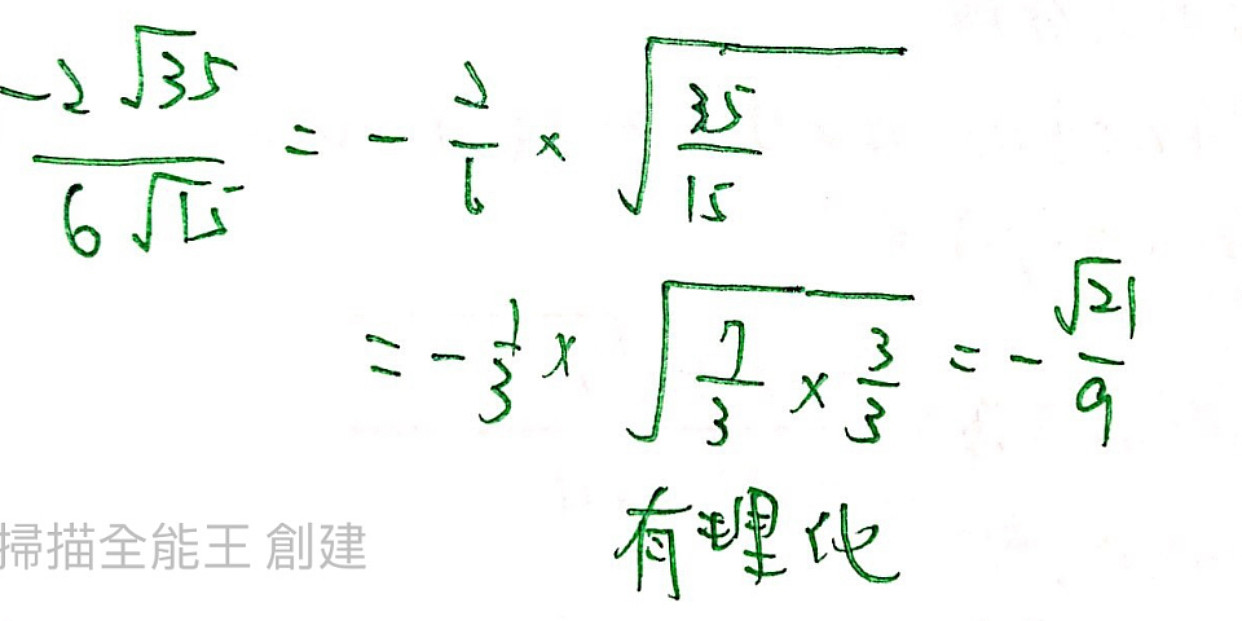 -2√35 / 6√15 = - 2/6 × √(35/15)
= - 1/3 × √(7/3 × 3/3) = - √21/9
有理化
掃描全能王 創建